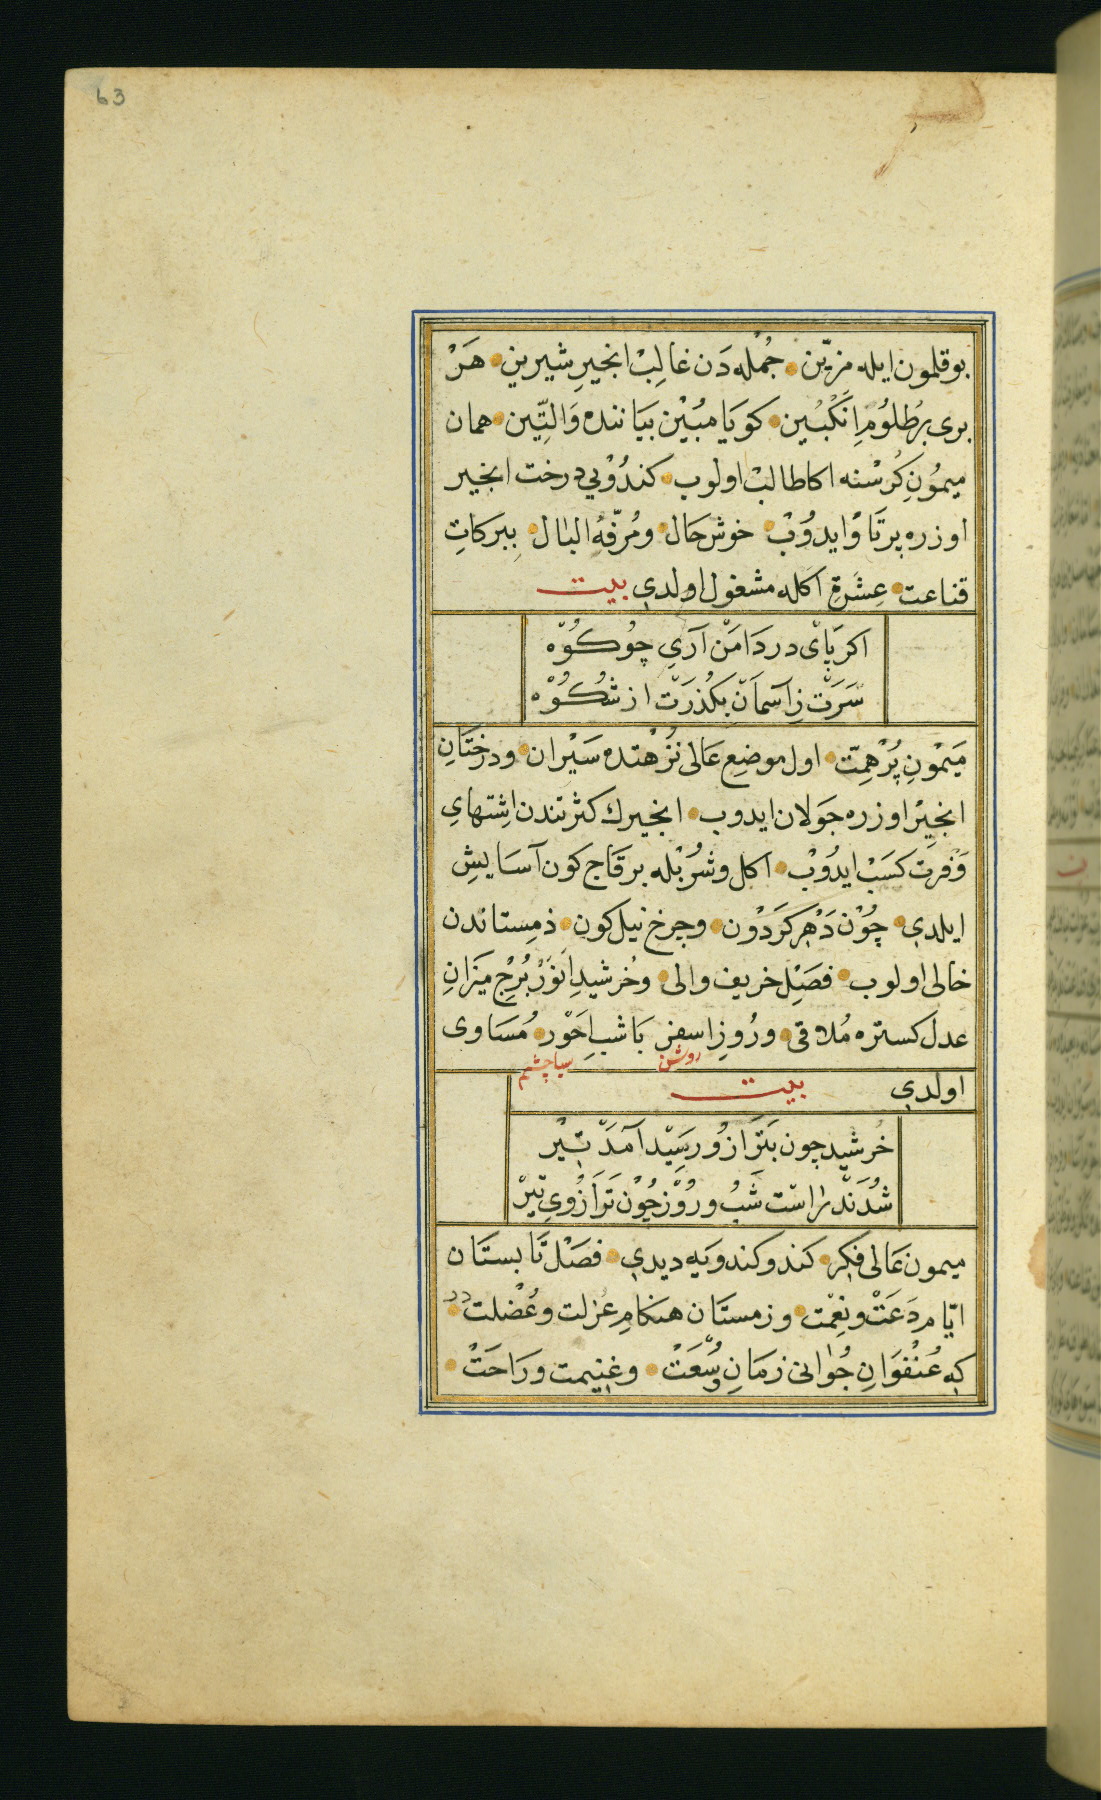 63
بوقلمون ایله مزیّن • جُمْله دَن غالِبْ انجیرِ شیرین • هَرْ
بری بَرْطلوُمِ اَنْكَبُین • كویا مبُیْن بَیَانندہ وَالتِّین • همان
میمُونِ كُرسْنه اكا طالبْ اولوب • كندُوْیی درخت انجیر
اوزره پرتَاوْ ایدوُبْ • خوش حَال • ومُرفّهُ البٰال • بِبركاتِ
قناعت • عِشَرةِ اكله مشغول اولدی بیت
اكر پَایْ در دَامَنْ آرَی چوُكُوْه
سَرَتْ زآسمَانْ بكُذرَتْ از شُكُوُهْ
مَیْمونِ پُرْهِمّت • اول موضعِ عَالی نزُهْتده سَیْران • ودرختَانِ
انجیْر اوزره جَولان ایدوب • انجیرك كثرتندن اِشتهایِ
وَفْرتِ كسَبْ ایدُوْبْ • اكل وشُرْبْله برقاج كون آسَایشِ
ایلدی • چُوْن دَهْرِ كَرَدوُن • وچرخِ نیل كون • ذمِستاندن
خالی اولوب • فصَلِ خریف والی • وخُرشیدِ اَنوَرْ بُرْجِ میَزانِ
عدل كستره مُلاقی • ورُوزِ اسفر بَا شبِ احَوْر • مُسَاوی
روشن سیاچشم
اولدی بیت
خُرشید چون بَترَازُو رسَیْد آمَدْ تیْر
شُدَنْد راسْت شَبُ ورُوُزْ چُوْن تَرازُویِ تیرْ
میمون عَالی فِكِر • كندو كندویَه دیدی • فصَلْ تَابستَان
ایّامِ دَعَتْ ونِعْمت • وزمستَان هنكامِ عُزلت وعُضْلت در •
كه عُنْفوَانِ جُوانی زمَانِ وُسْعَتْ • وغنیمت ورَاحَتْ •